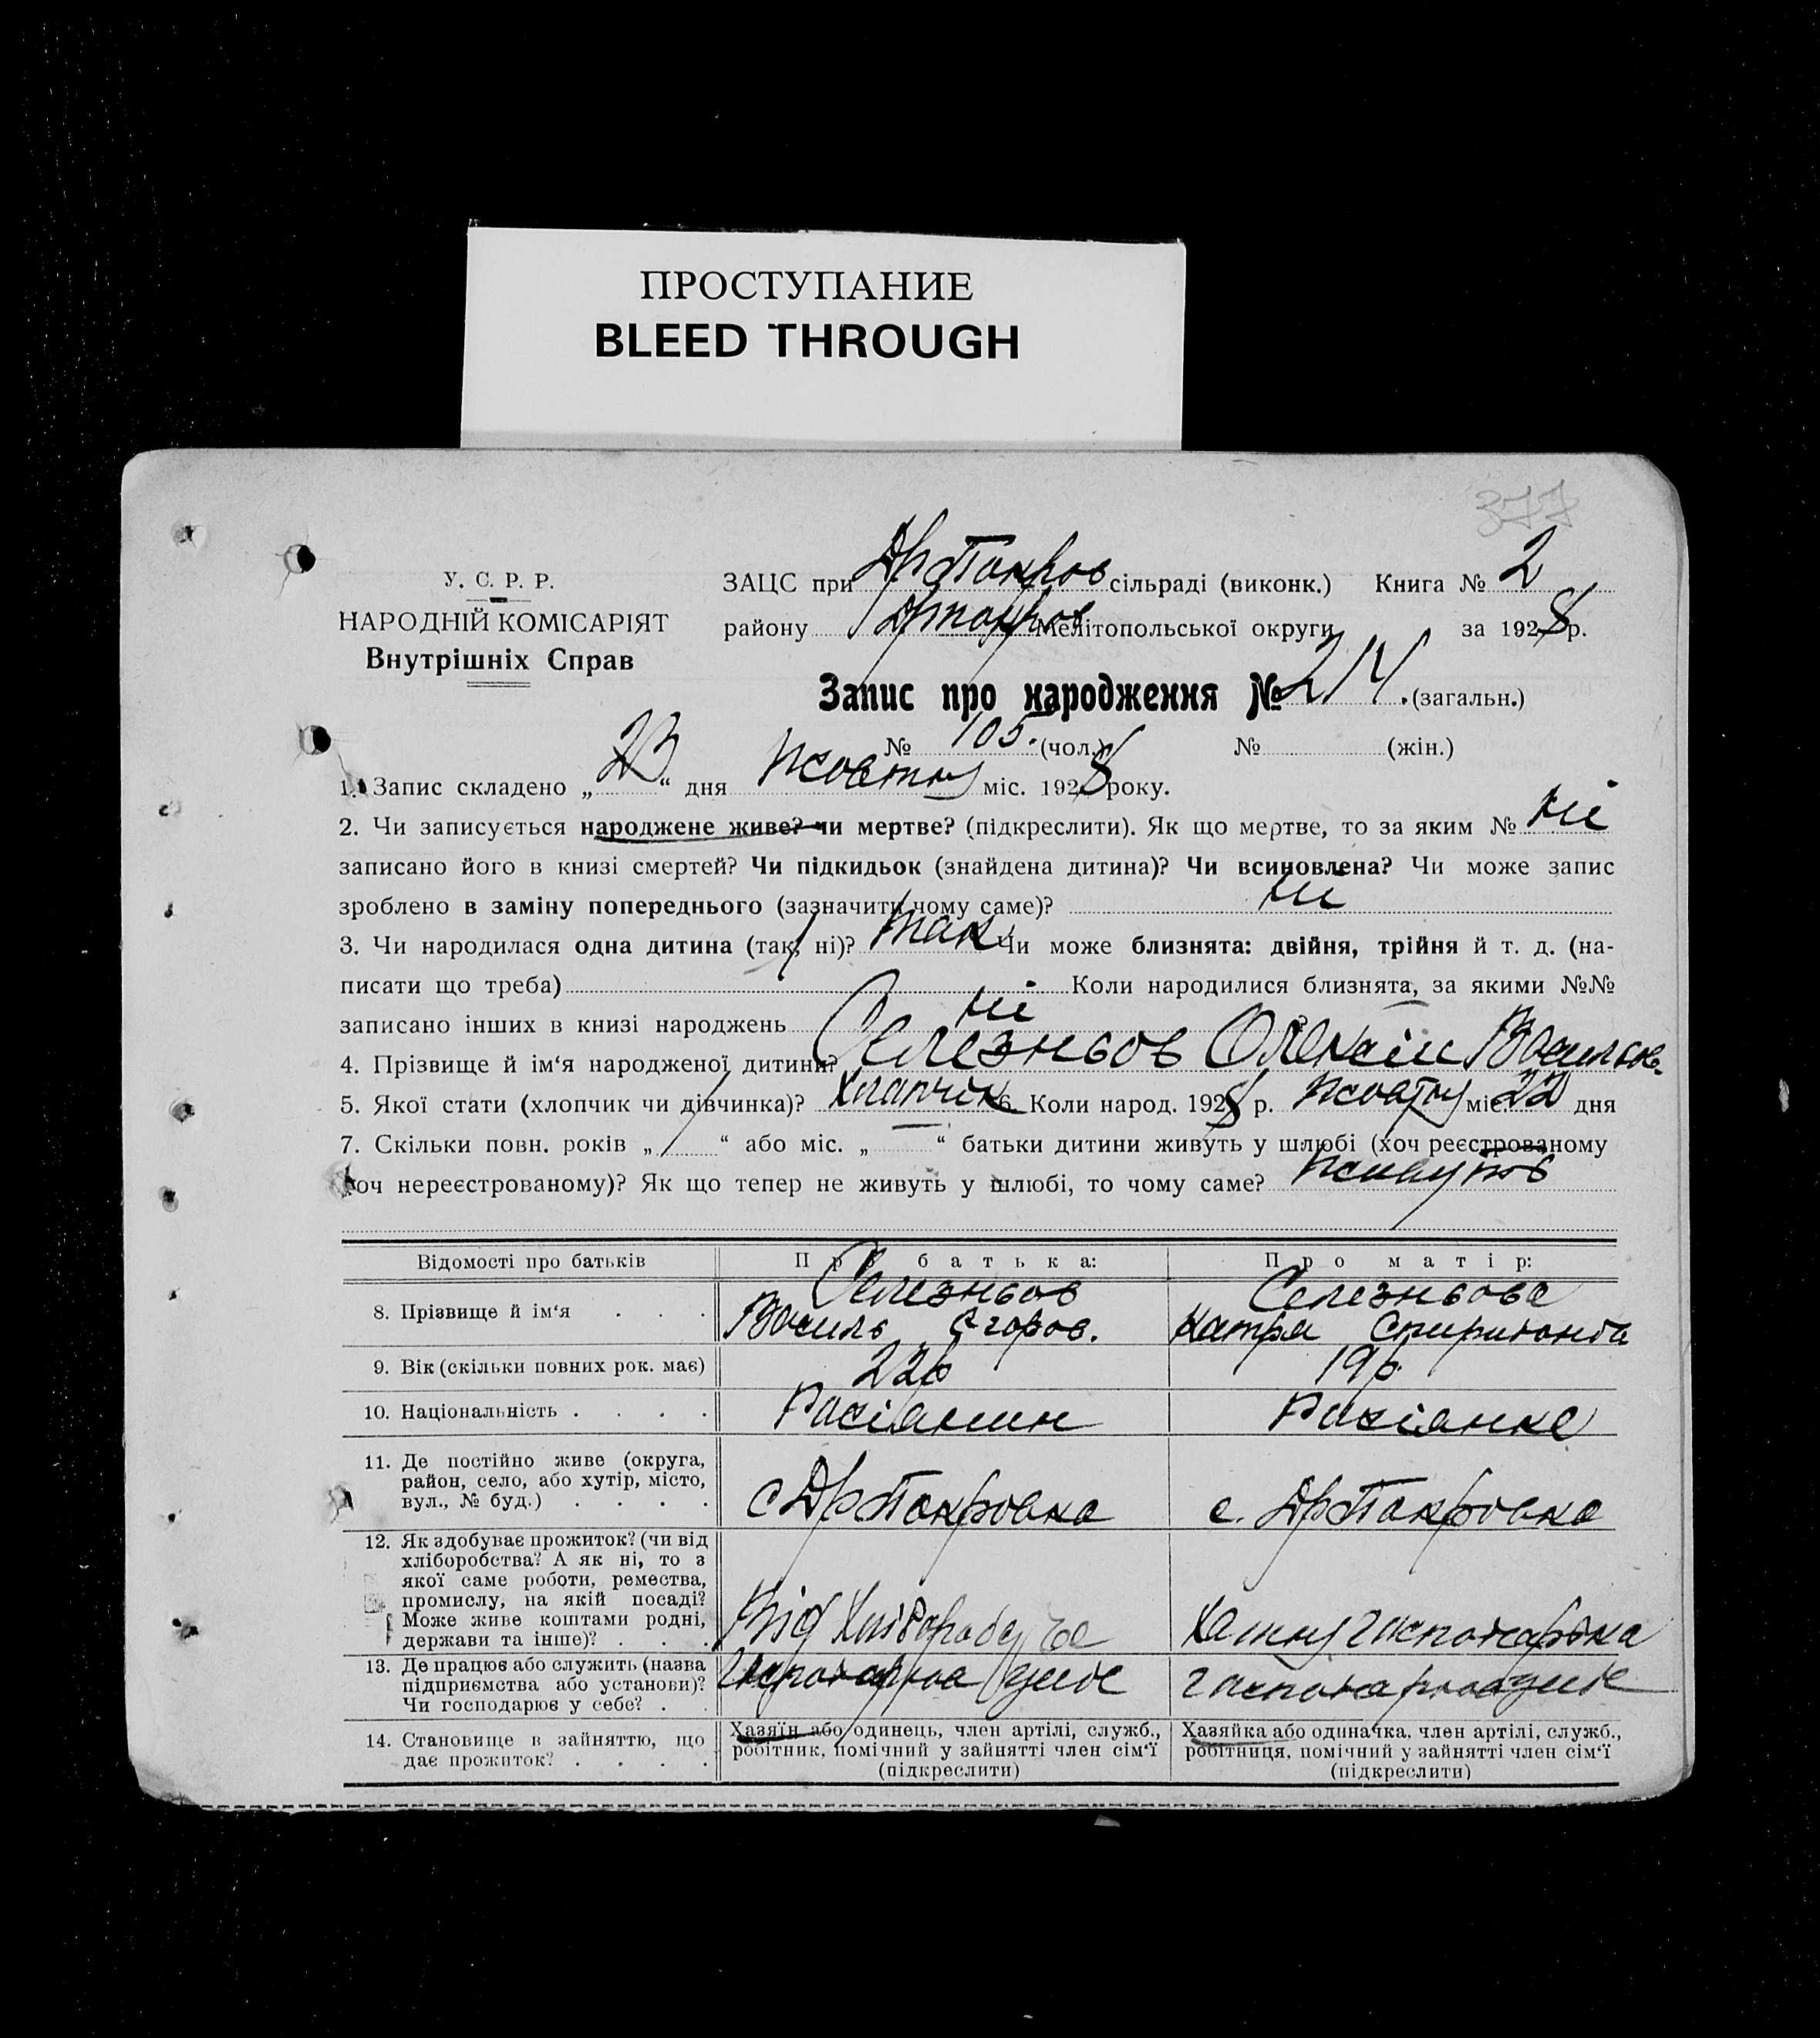 ПРОСТУПАНИЕ
BLEED THROUGH
377
У. С. Р. Р.
НАРОДНІЙ КОМІСАРІЯТ
Внутрішніх Справ
ЗАЦС при ДрПокров сільраді (виконк.) Книга № 2
району Мелітопольської округи за 1928 р.
Запис про народження № 214. (загальн.)
№ 105. (чол.) № (жін.)
1. Запис складено „23“ дня жовтня міс. 1928 року.
2. Чи записується народжене живе? чи мертве? (підкреслити). Як що мертве, то за яким № ні
записано його в книзі смертей? Чи підкидьок (знайдена дитина)? Чи всиновлена? Чи може запис
зроблено в заміну попереднього (зазначити чому саме)? ні
3. Чи народилася одна дитина (так, ні)? так Чи може близнята: двійня, трійня й т. д. (на-
писати що треба) Коли народилися близнята, за якими №№
записано інших в книзі народжень ні
4. Прізвище й ім‘я народженої дитини? Селезньов Олексій Васильов.
5. Якої стати (хлопчик чи дівчинка)? Хлапчік 6. Коли народ. 1928 р. жовтня міс. 22 дня
7. Скільки повн. років „ “ або міс. „ “ батьки дитини живуть у шлюбі (хоч реєстрованому
хоч нереєстрованому)? Як що тепер не живуть у шлюбі, то чому саме?
Відомості про батьків Про батька: Про матір:
8. Прізвище й ім‘я . . . Селезньов Василь Єгоров. Селезньова Катря
9. Вік (скільки повних рок. має) 22р 19р.
10. Національність . . . . Расіянин Расіянка
11. Де постійно живе (округа,
район, село, або хутір, місто,
вул., № буд.) . . . . с ДрПокровка с. ДрПокровка
12. Як здобуває прожиток? (чи від
хліборобства? А як ні, то з
якої саме роботи, ремества,
промислу, на якій посаді?
Може живе коштами родні,
держави та інше)? . . . Від
13. Де працює або служить (назва
підприємства або установи)?
Чи господарює у себе? . .
14. Становище в зайняттю, що
дає прожиток? . . . .
Хазяїн або одинець, член артілі, служб.,
робітник, помічний у зайнятті член сім‘ї
(підкреслити)
Хазяйка або одиначка, член артілі, служб.,
робітниця, помічний у зайнятті член сім‘ї
(підкреслити)